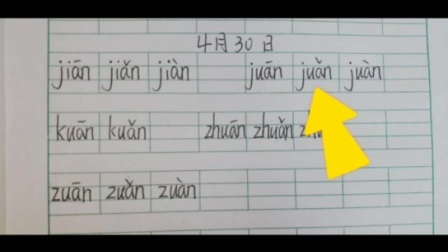 4月30日
jiān jiǎn jiàn juān juǎn juàn
kuān kuǎn zhuān zhuǎn
zuān zuǎn zuàn